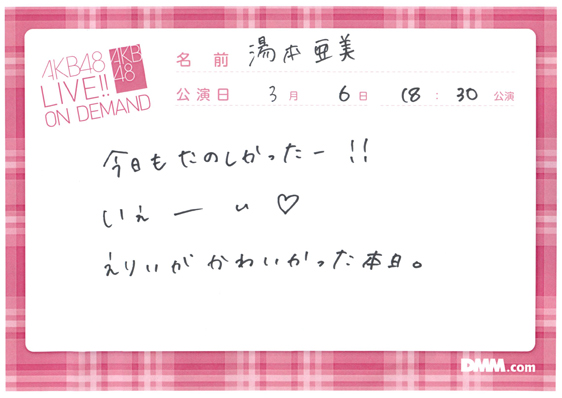 AKB48
LIVE!!
ON DEMAND
AKB
48
名前 湯本亜美
公演日 3月 6日 18:30 公演
今日もたのしかったー!!
いぇーい♡
えりいがかわいかった本日。
DMM.com